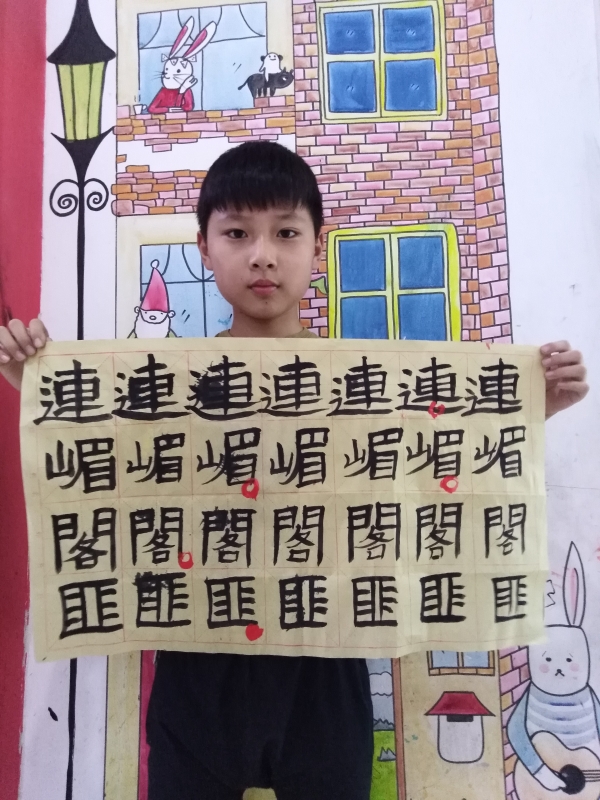 連連連連連連連
嵋嵋嵋嵋嵋嵋嵋
閣閣閣閣閣閣閣
匪匪匪匪匪匪匪